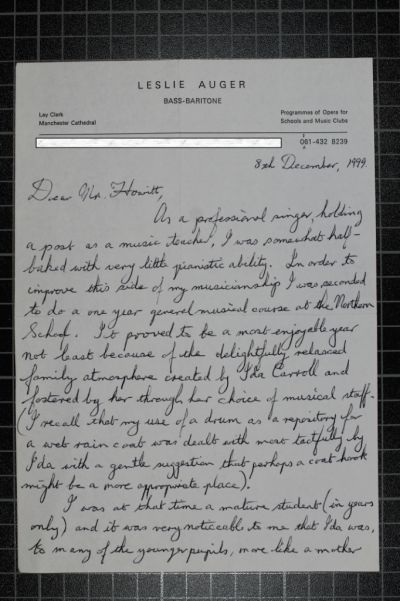 LESLIE AUGER
BASS-BARITONE
Lay Clerk
Manchester Cathedral
Programmes of Opera for
Schools and Music Clubs
061-432 8239
8th December, 1999.
Dear Mr. Howitt,
As a professional singer, holding
a post as a music teacher, I was somewhat half-
baked with very little pianistic ability. In order to
improve this side of my musicianship I was seconded
to do a one year general musical course at the Northern
School. It proved to be a most enjoyable year
not least because of the delightfully relaxed
family atmosphere created by Ida Carroll and
fostered by her through her choice of musical staff.
(I recall that my use of a drum as a repository for
a wet rain coat was dealt with most tactfully by
Ida with a gentle suggestion that perhaps a coat hook
might be a more appropriate place).
I was at that time a mature student (in years
only) and it was very noticeable to me that Ida was,
to many of the younger pupils, more like a mother